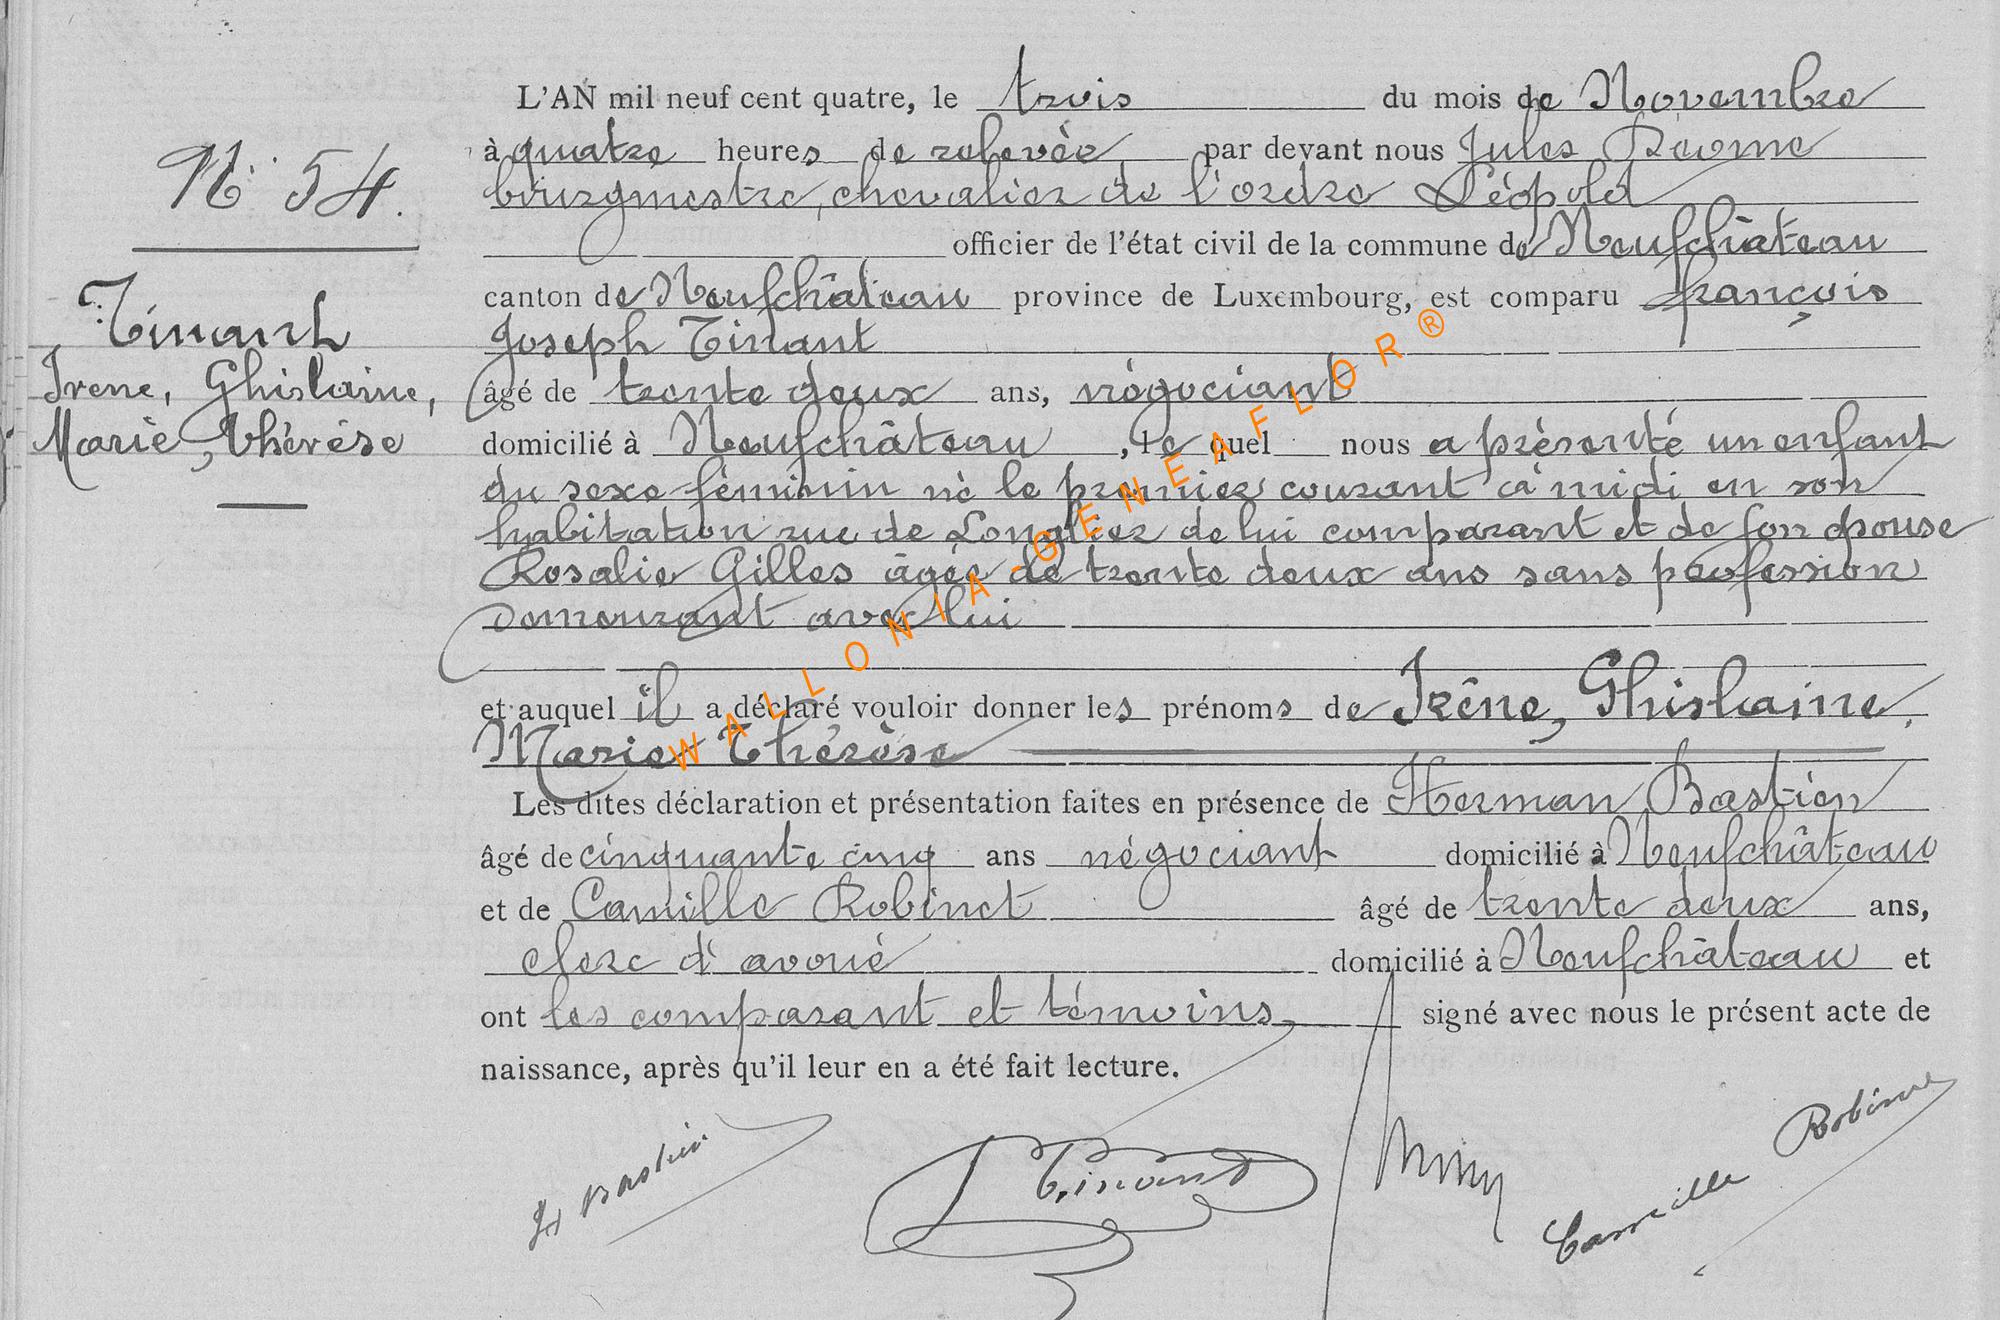 L'AN mil neuf cent quatre, le trois du mois de Novembre
à quatre heures de relevée par devant nous Jules
bourgmestre, chevalier de l'ordre Léopold
officier de l'état civil de la commune de Neufchâteau
canton de Neufchâteau province de Luxembourg, est comparu françois
Joseph Tinant
âgé de trente deux ans, négociant
domicilié à Neufchâteau, le quel nous a présenté un enfant
du sexe féminin né le premier courant à midi en son
habitation rue de Longlier de lui comparant et de son épouse
Rosalie Gilles âgée de trente deux ans sans profession
demeurant avec lui
et auquel il a déclaré vouloir donner les prénoms de Irène, Ghislaine,
Marie Thérèse
Les dites déclaration et présentation faites en présence de Herman Bastien
âgé de cinquante cinq ans négociant domicilié à Neufchâteau
et de Camille Robinet âgé de trente deux ans,
clerc d'avoué domicilié à Neufchâteau et
ont les comparant et témoins, signé avec nous le présent acte de
naissance, après qu'il leur en a été fait lecture.
N° 54.
Tinant
Irene, Ghislaine,
Marie, Thérèse
H Bastien
J Tinant
Camille Robinet
WALLONIA-GENEAFLOR®